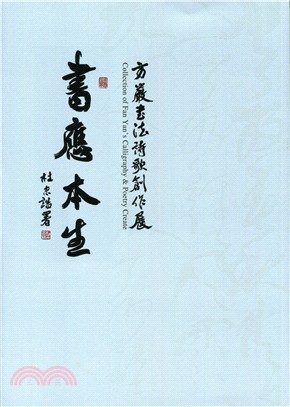 方巖書法詩歌創作展
Collection of Fan Yan's Calligraphy & Poetry Create
書應本生
杜忠誥署
三民